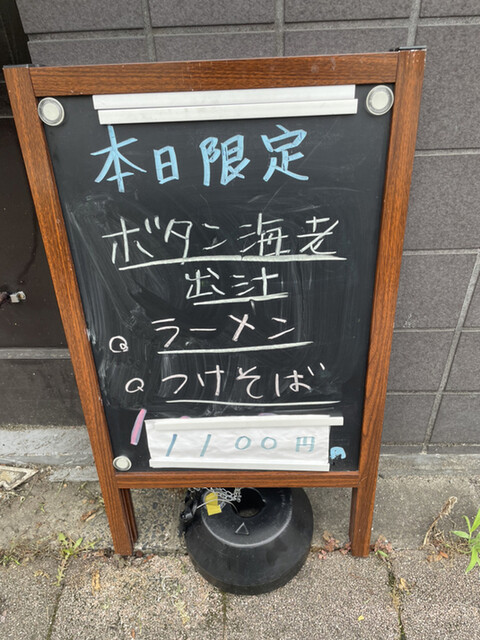 本日限定
ボタン海老
出汁
ラーメン
つけそば
1100円